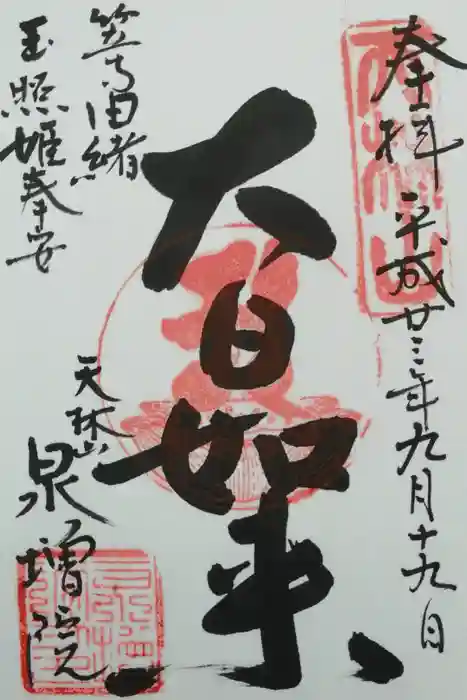 奉拝 平成廿三年九月十九日
大日如来
笠寺由緒
玉照姫奉安
天林山
泉増院